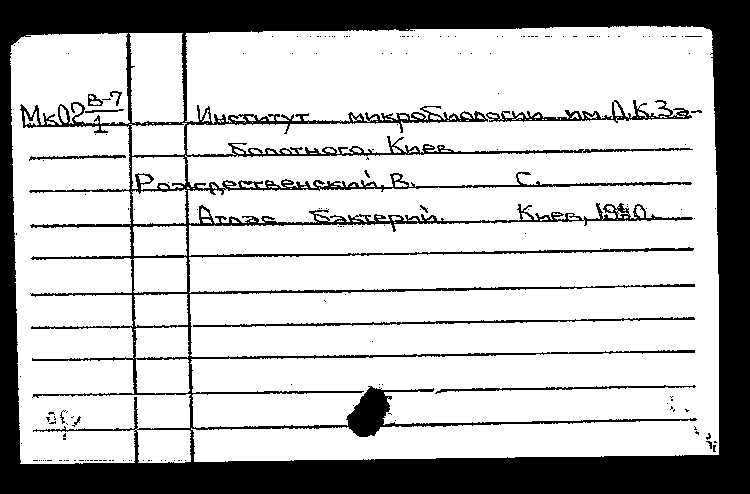 Мк02 В-7/1 Институт микробиологии им. Д.К.За-
болотного. Киев
Рождественский, В. С.
Атлас бактерий. Киев,